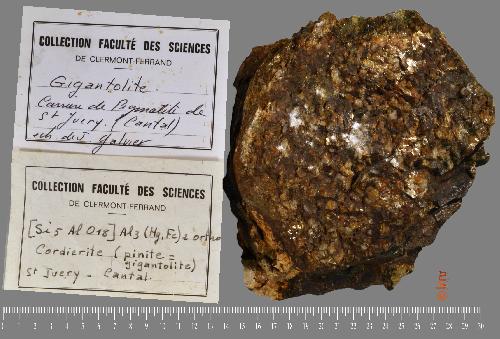 COLLECTION FACULTÉ DES SCIENCES
DE CLERMONT-FERRAND
Gigantolite
de
St Juery. (Cantal)
COLLECTION FACULTÉ DES SCIENCES
DE CLERMONT-FERRAND
[Si5 Al O18] Al3 (Mg, Fe)2 ortho
Cordierite (pinite =
gigantolite)
St Juery - Cantal.
0 1 2 3 4 5 6 7 8 9 10 11 12 13 14 15 16 17 18 19 20 21 22 23 24 25 26 27 28 29 30